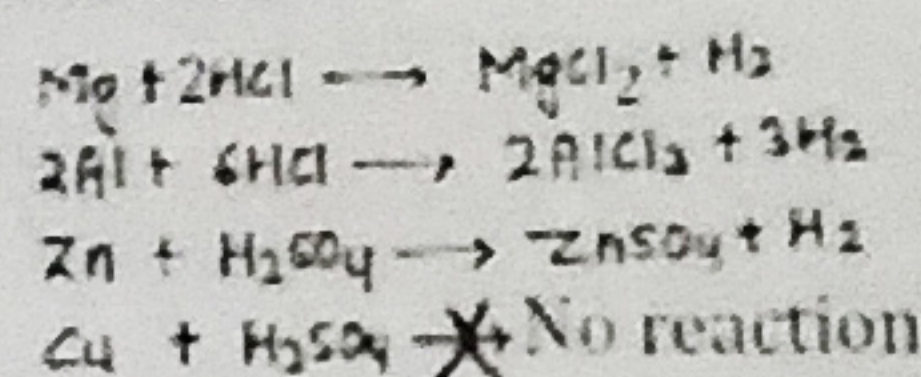 Mg + 2HCl → MgCl₂ + H₂
2Al + 6HCl → 2AlCl₃ + 3H₂
Zn + H₂SO₄ → ZnSO₄ + H₂
Cu + H₂SO₄ ↛ No reaction